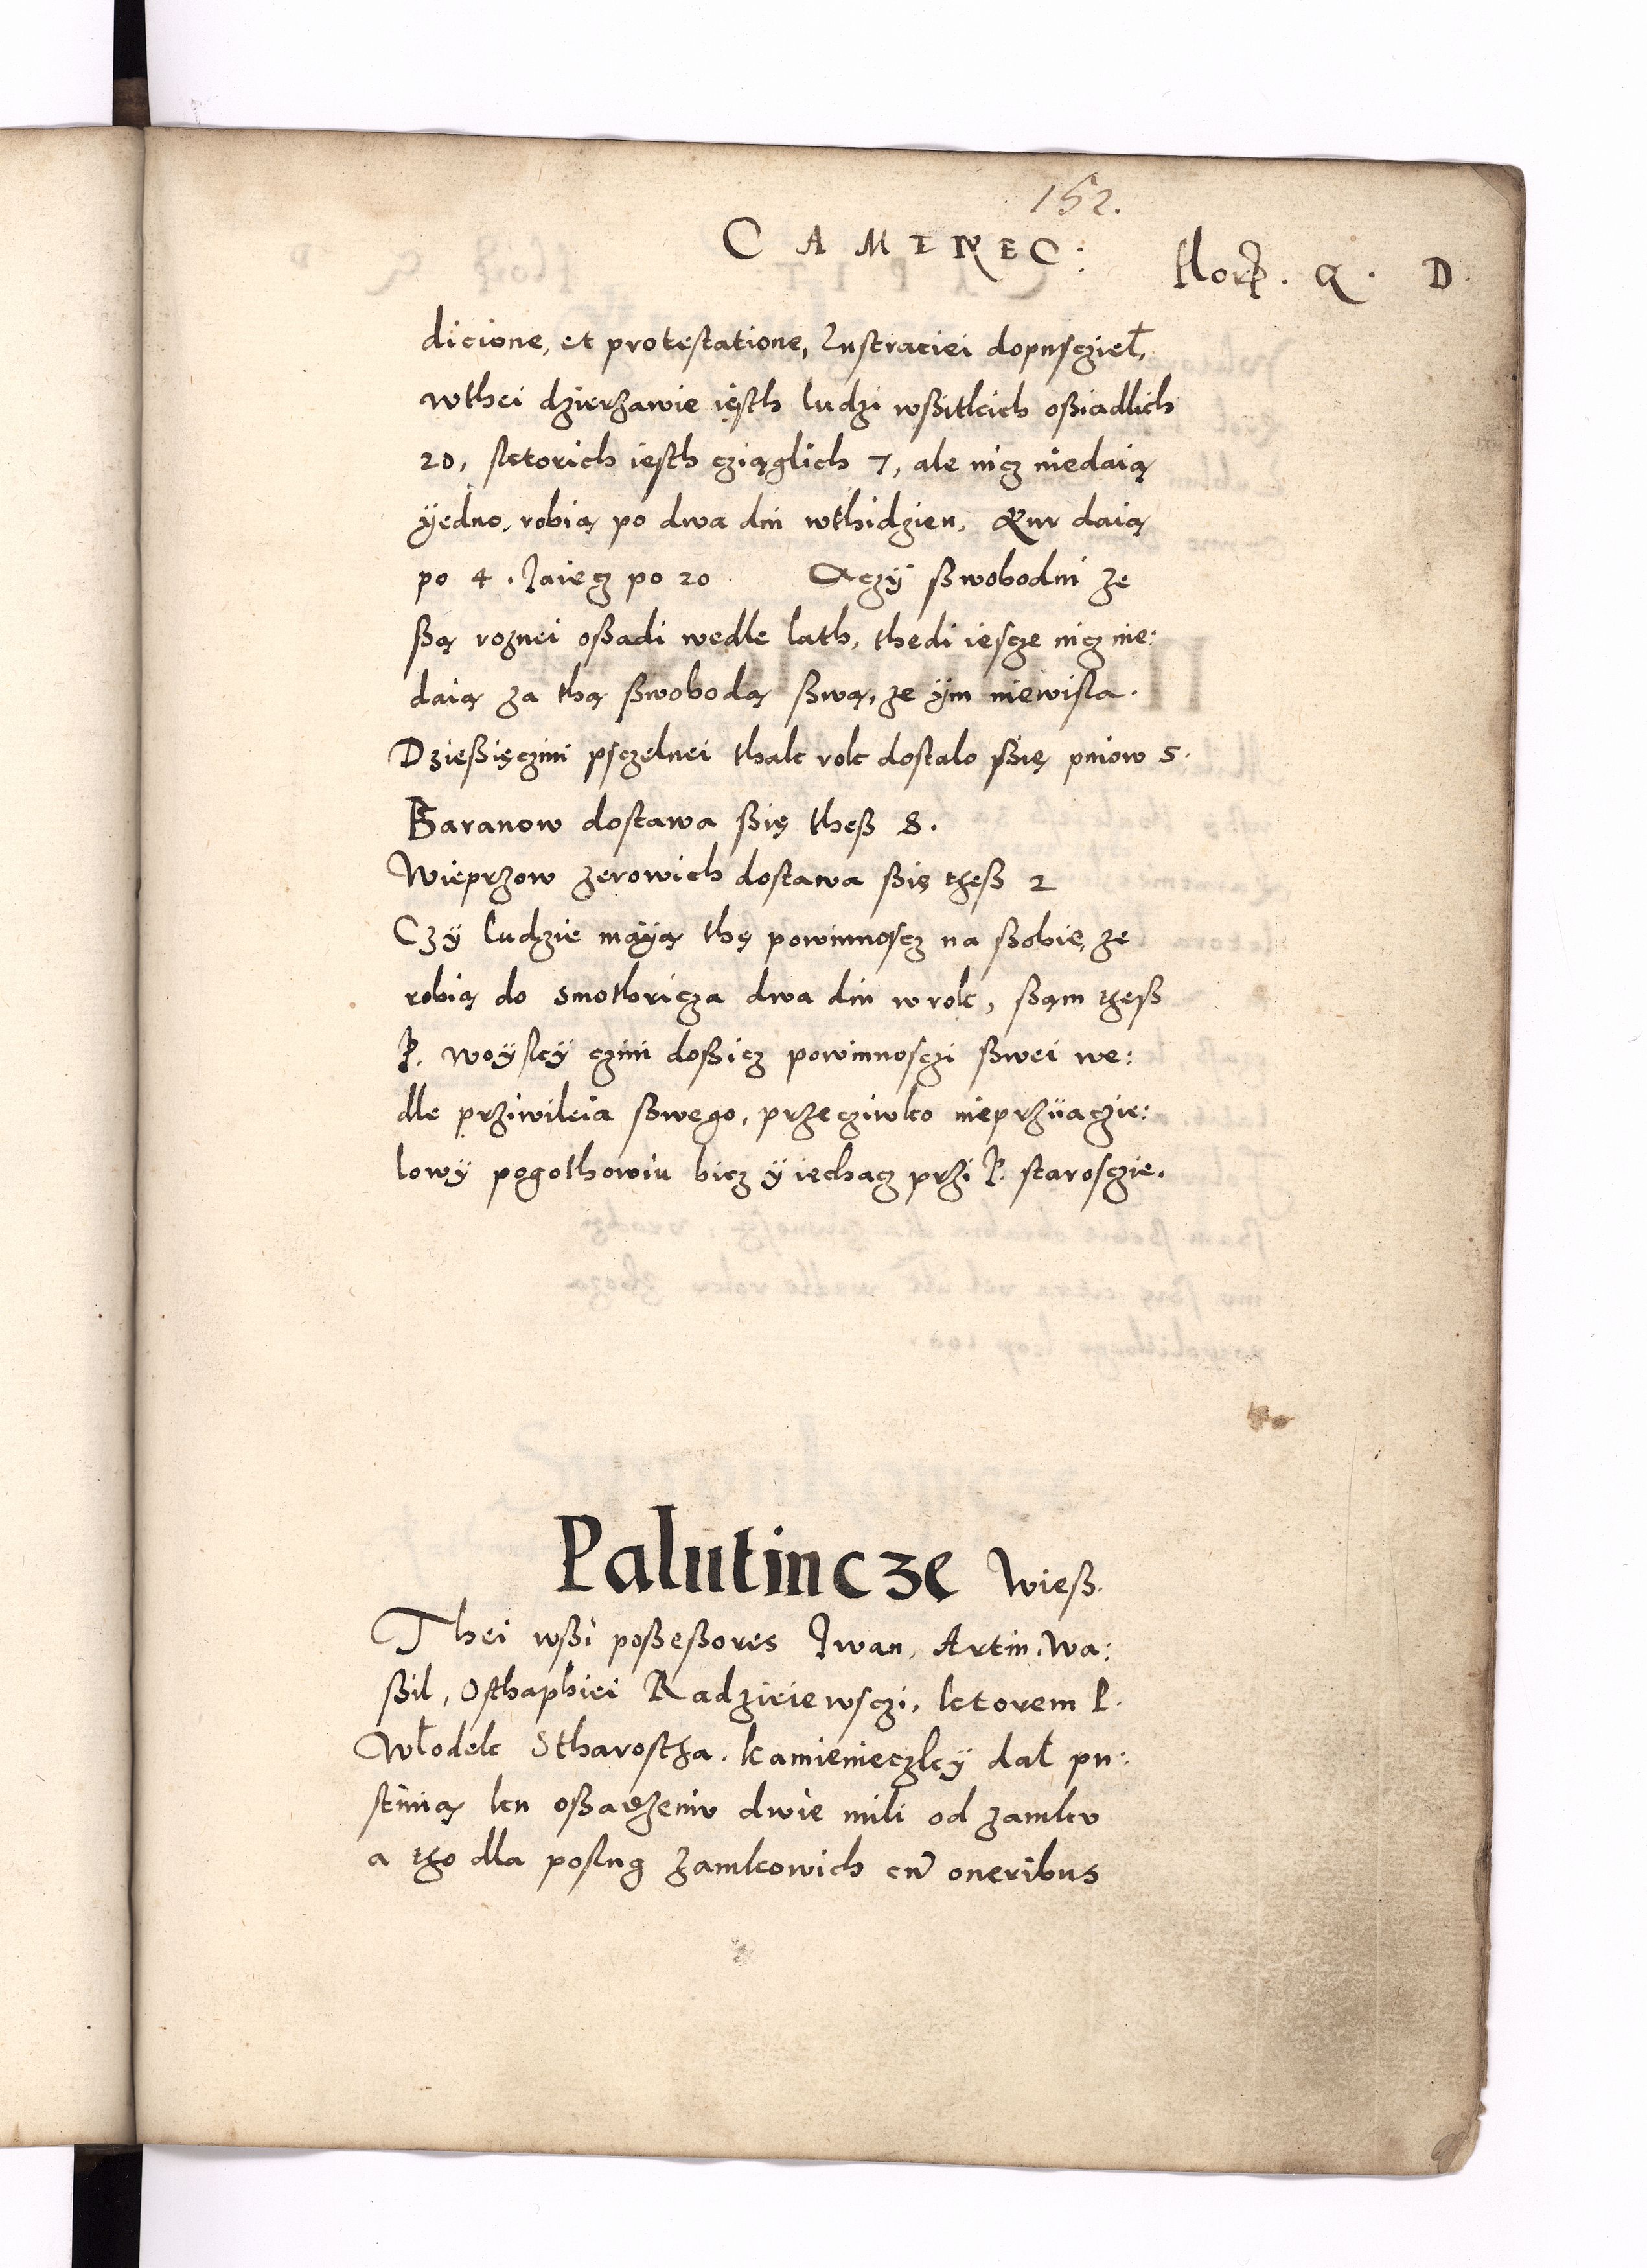 152.
CAMINEC:
Flor. Q. D.
dicione, et protestatione, Lustraciei dopusczieł,
wthei dzierżawie iesth ludzi wßitkich oßiadlich
20, ktorich iesth cziąglich 7, ale nicz niedaią
ÿedno, robią po dwa dni wthidzien, Kur daią
po 4. Jaiecz po 20. Aczÿ ßwobodni że
ßą roznei oßadi wedle lath, thedi iescze nicz nie:
daią za thą ßwobodą ßwą, że ÿm niewisła.
Dzießięczini psczelnei thak rok dostalo ßię pniow 5.
Baranow dostawa ßię theß 8.
Wieprzow żerowich dostawa ßię theß 2
Czÿ ludzie maÿą thę powinnoscz na ßobie, że
robią do Smothricza dwa dni w rok, ßąm theß
P. woÿskÿ czini doßicz powinnosczi ßwei we:
dle prziwileia ßwego, przecziwko nieprzÿiaczie:
lowÿ pogothowiu bicz ÿ iechacz przi P. starosczie.
Palutincze Wieß.
Thei wßi poßeßores Jwan, Artin, Wa:
ßil, Osthaphiei Radzieiewsczi, ktorem P.
Włodek Stharostha. kamienieczkÿ dał pu:
stinią ku oßadzeniu dwie mili od zamku
a tho dla poslug zamkowich cu͂ oneribus